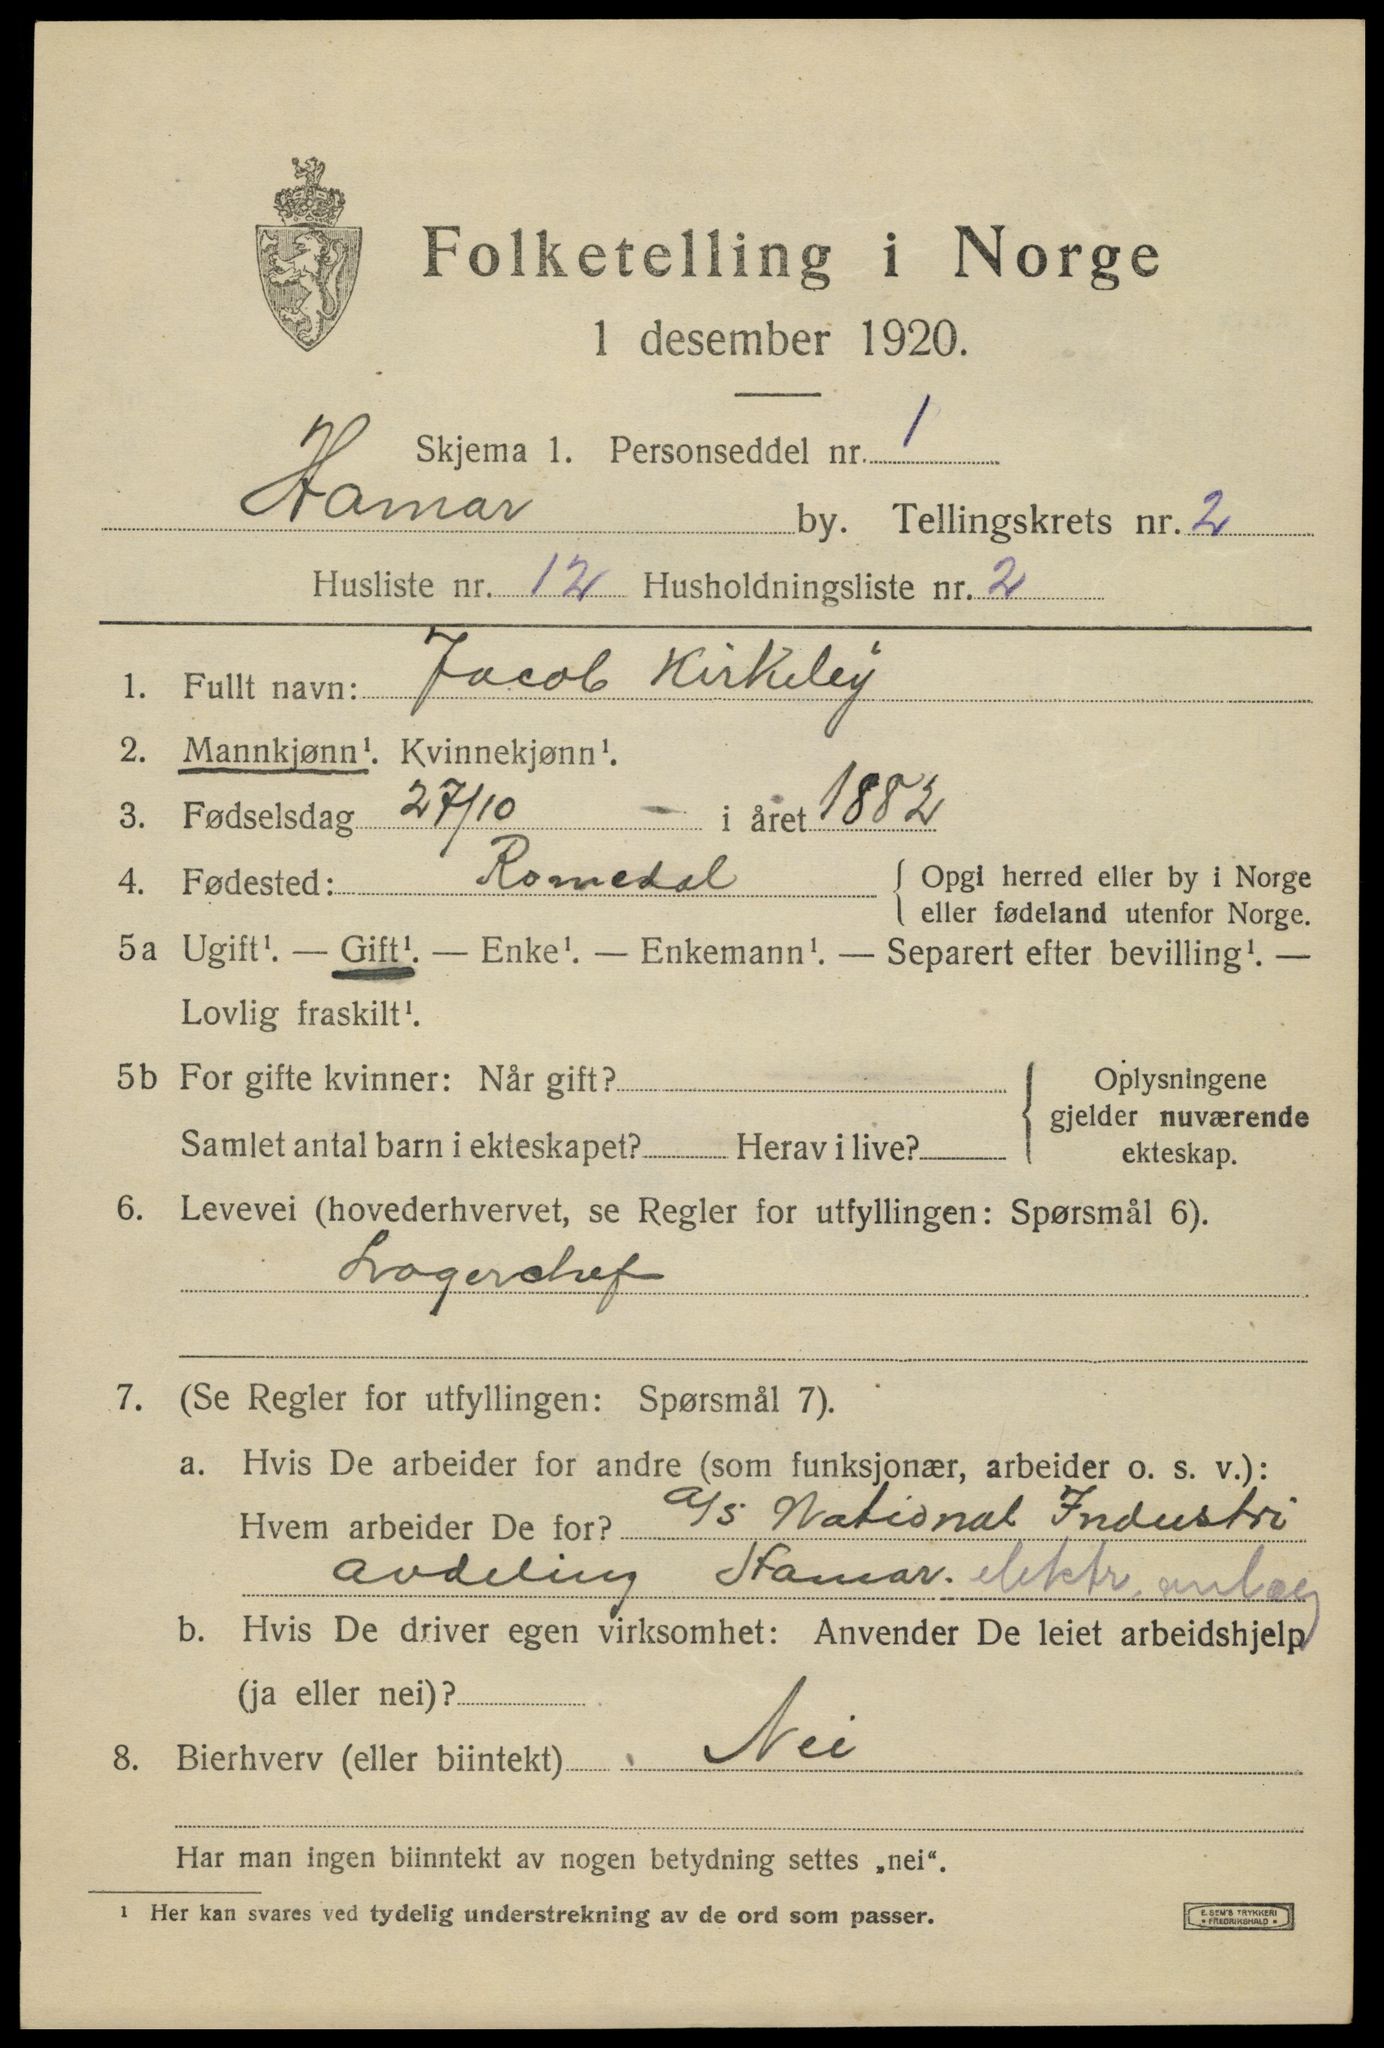 Folketelling i Norge
1 desember 1920.
Skjema 1. Personseddel nr. 1
Hamar by. Tellingskrets nr. 2
Husliste nr. 12 Husholdningsliste nr. 2
1. Fullt navn: Jacob Kirkeby
2. Mannkjønn¹. Kvinnekjønn¹.
3. Fødselsdag 27/10 i året 1882
4. Fødested: Romedal { Opgi herred eller by i Norge
eller fødeland utenfor Norge.
5a Ugift¹. — Gift¹. — Enke¹. — Enkemann¹. — Separert efter bevilling¹. —
Lovlig fraskilt¹.
5b For gifte kvinner: Når gift? { Oplysningene
gjelder nuværende
Samlet antal barn i ekteskapet? Herav i live? ekteskap.
6. Levevei (hovederhvervet, se Regler for utfyllingen: Spørsmål 6).
Lagerchef
7. (Se Regler for utfyllingen: Spørsmål 7).
a. Hvis De arbeider for andre (som funksjonær, arbeider o. s. v.):
Hvem arbeider De for? a/s National Industri
avdeling Hamar. elektr. anlæg
b. Hvis De driver egen virksomhet: Anvender De leiet arbeidshjelp
(ja eller nei)?
8. Bierhverv (eller biintekt) Nei
Har man ingen biinntekt av nogen betydning settes „nei“.
¹ Her kan svares ved tydelig understrekning av de ord som passer.
E. SEM'S TRYKKERI
• FREDRIKSHALD •